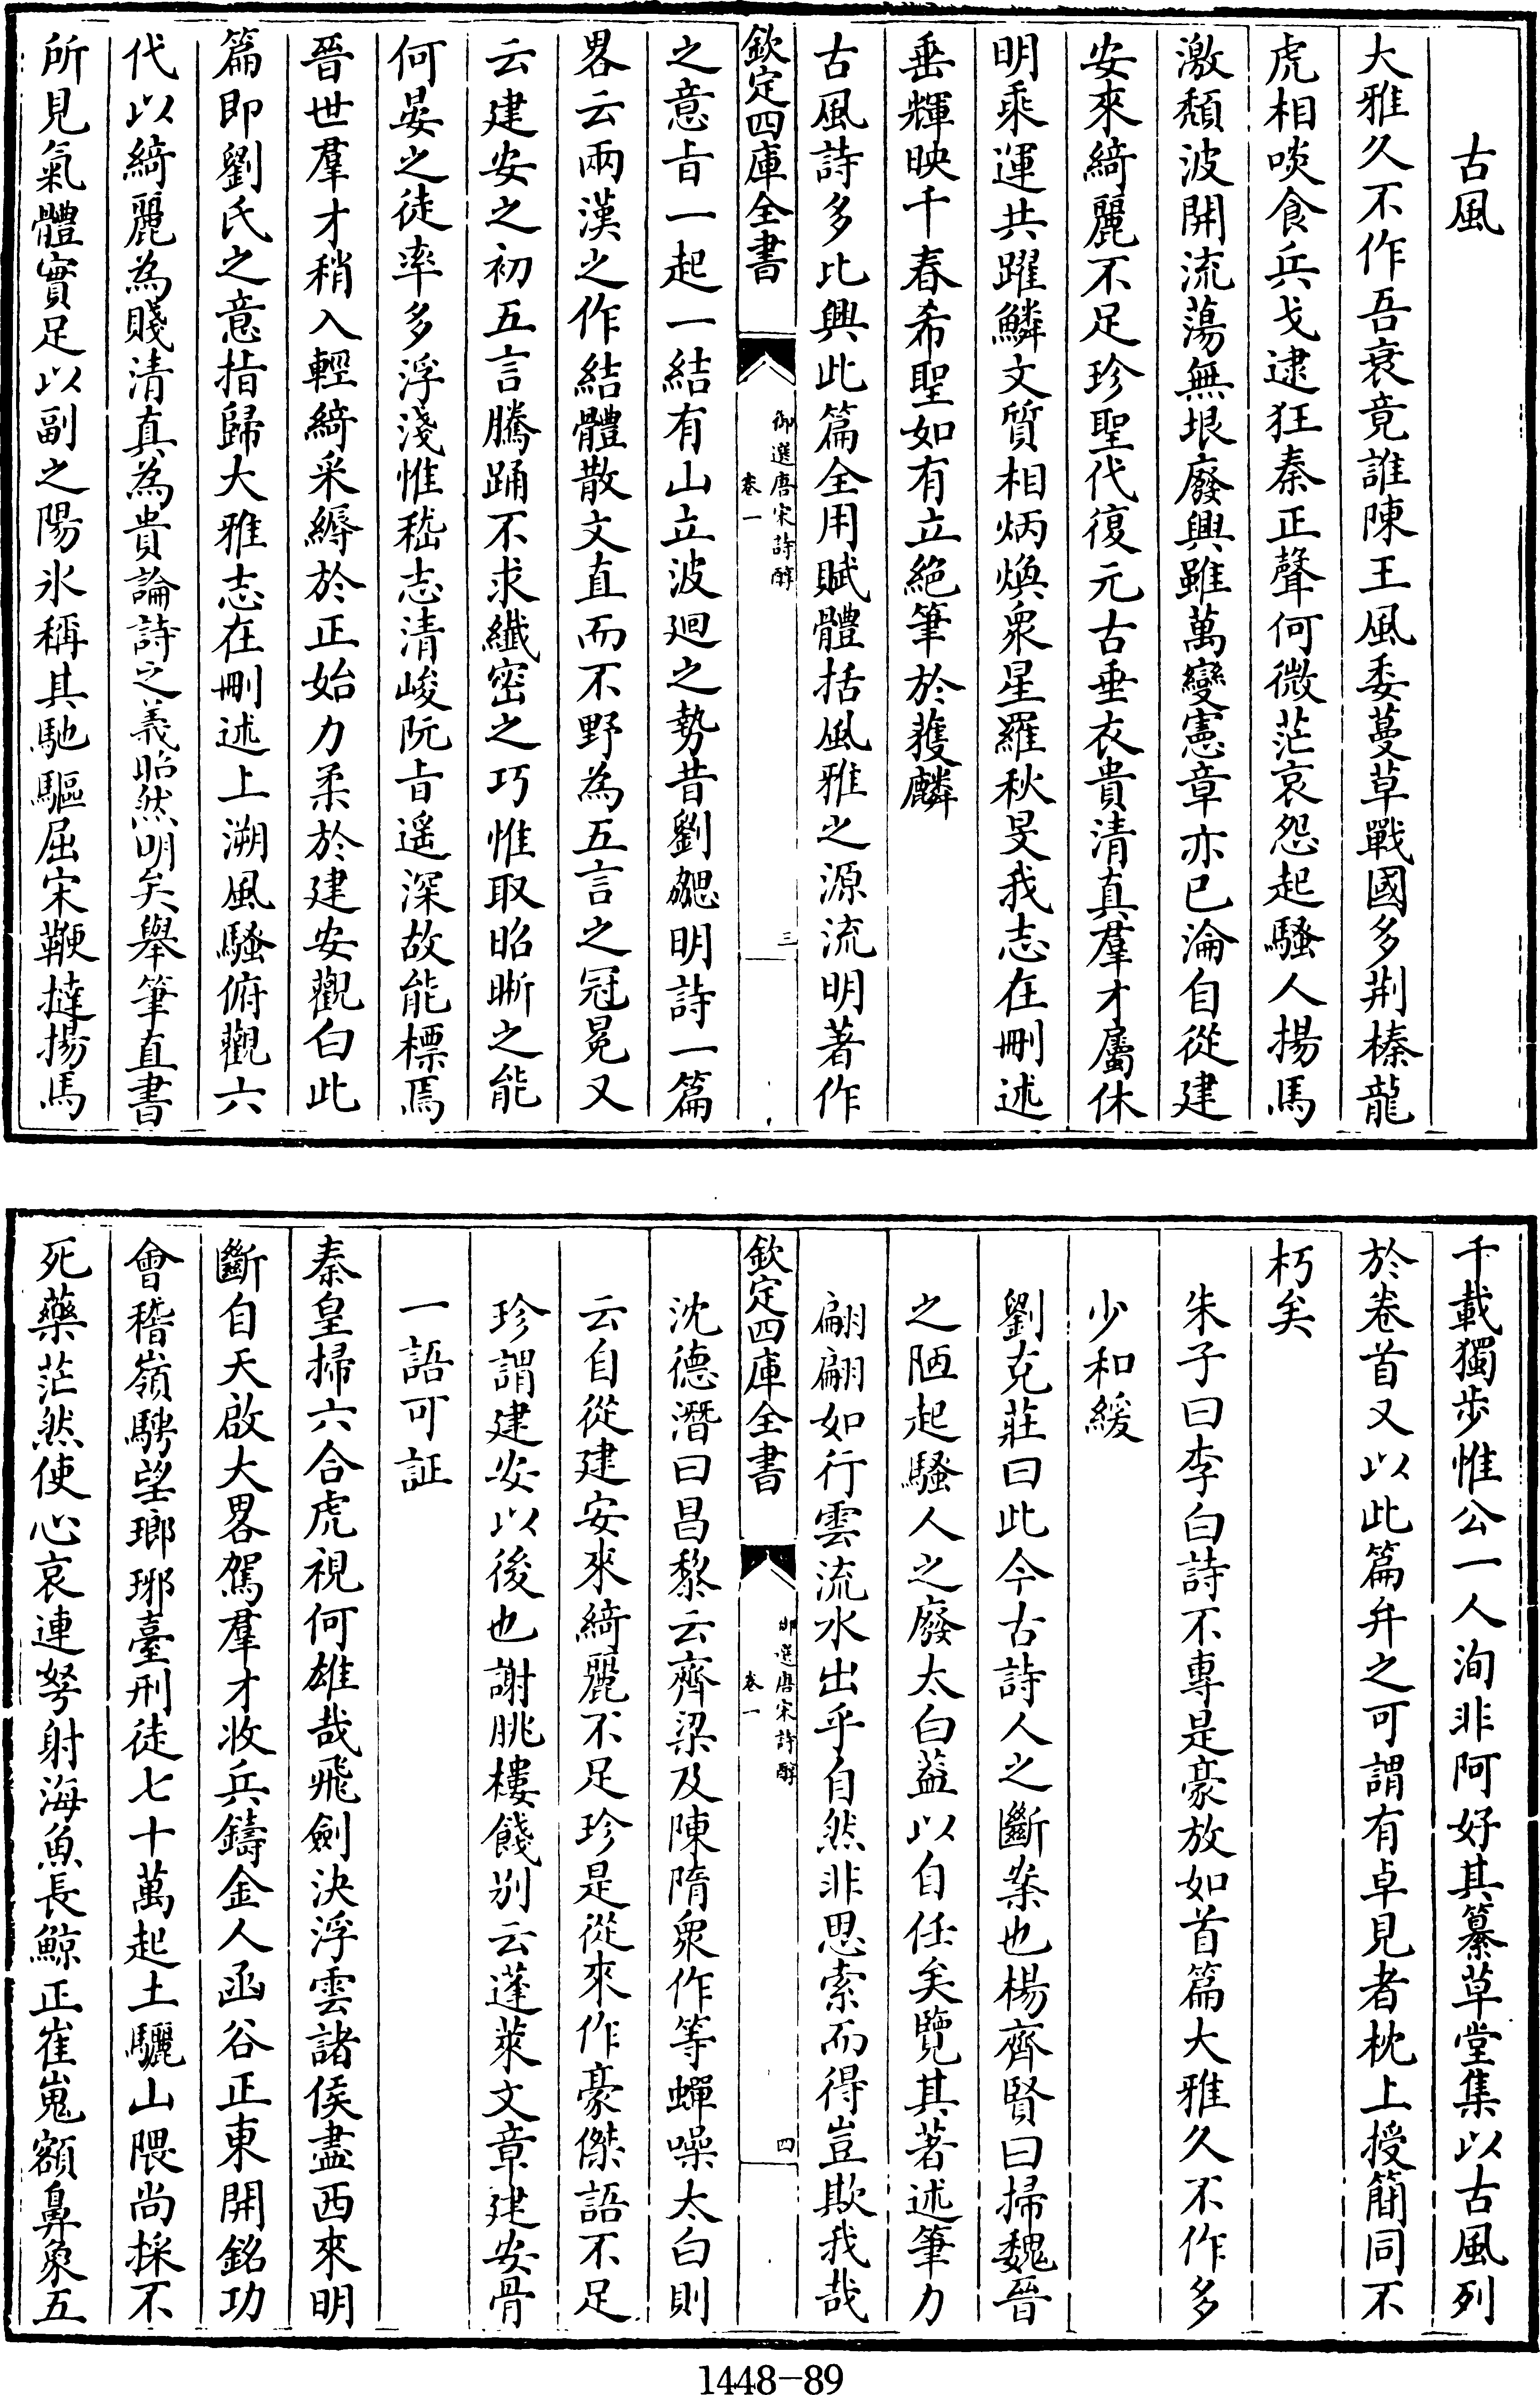 古風
大雅久不作吾衰竟誰陳王風委蔓草戰國多荆榛龍
虎相啖食兵戈逮狂秦正聲何微茫哀怨起騷人揚馬
激頽波開流蕩無垠廢興雖萬變憲章亦已淪自從建
安來綺麗不足珍聖代復元古垂衣貴清真羣才屬休
明乘運共躍鱗文質相炳煥衆星羅秋旻我志在刪述
垂輝映千春希聖如有立絶筆於獲麟
古風詩多比興此篇全用賦體括風雅之源流明著作
欽定四庫全書
御選唐宋詩醇
卷一
三
之意旨一起一結有山立波廻之勢昔劉勰明詩一篇
畧云兩漢之作結體散文直而不野為五言之冠冕又
云建安之初五言騰踊不求纎密之巧惟取昭晰之能
何晏之徒率多浮淺惟嵇志清峻阮旨遥深故能標焉
晉世羣才稍入輕綺采縟於正始力柔於建安觀白此
篇即劉氏之意指歸大雅志在刪述上溯風騷俯觀六
代以綺麗為賤清真為貴論詩之義昭然明矣舉筆直書
所見氣體實足以副之陽氷稱其馳驅屈宋鞭撻揚馬
千載獨步惟公一人洵非阿好其纂草堂集以古風列
於卷首又以此篇弁之可謂有卓見者枕上授簡同不
朽矣
朱子曰李白詩不專是豪放如首篇大雅久不作多
少和緩
劉克莊曰此今古詩人之斷案也楊齊賢曰掃魏晉
之陋起騷人之廢太白葢以自任矣覽其著述筆力
翩翩如行雲流水出乎自然非思索而得豈欺我哉
欽定四庫全書
御選唐宋詩醇
卷一
四
沈德潛曰昌黎云齊梁及陳隋衆作等蟬噪太白則
云自從建安來綺麗不足珍是從來作豪傑語不足
珍謂建安以後也謝朓樓餞别云蓬萊文章建安骨
一語可証
秦皇掃六合虎視何雄哉飛劍決浮雲諸侯盡西來明
斷自天啟大畧駕羣才收兵鑄金人函谷正東開銘功
會稽嶺騁望瑯琊臺刑徒七十萬起土驪山隈尚採不
死藥茫然使心哀連弩射海魚長鯨正崔嵬額鼻象五
1448-89